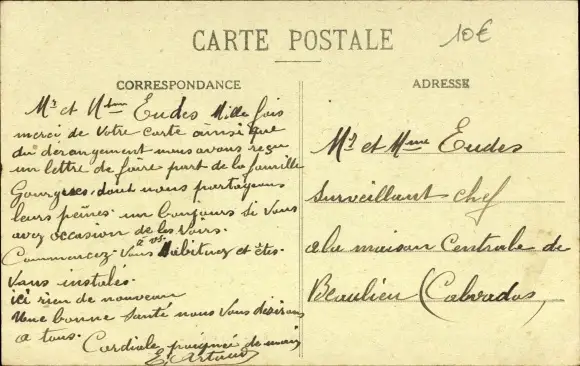 CARTE POSTALE
10€
CORRESPONDANCE
Mr et Mme Eudes Mille fois
merci de votre carte ainsi que
du derangement nous avons reçu
un lettre de faire part de la famille
dont nous partageons
leurs peines. un bonjours si vous
avez occasion de les voirs.
Commencez-vous à vs habituez et êtes-
vous instales.
ici rien de nouveau
Une bonne santé nous vous désirons
a tous.
Cordiale poignée de main
E. Artaud
ADRESSE
Mr et Mme Eudes
Surveillant chef
a la maison Centrale de
Beaulieu (Calvados)